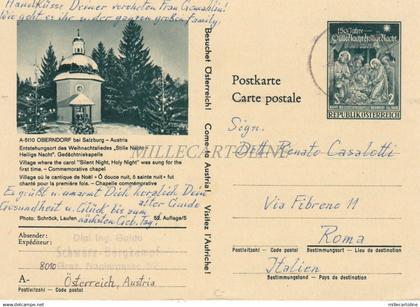 Handküsse Deiner verehrten Frau Gemahlin!
Wie geht es ihr u. der ganzen großen Family.
A-5110 OBERNDORF bei Salzburg – Austria
Entstehungsort des Weihnachtsliedes „Stille Nacht,
Heilige Nacht“. Gedächtniskapelle
Village where the carol "Silent Night, Holy Night" was sung for the
first time. – Commemorative chapel
Village où le cantique de Noël « Ô douce nuit, ô sainte nuit » fut
chanté pour la première fois. – Chapelle commémorative
Es grüßt u. umarmt Dich herzlich Dein
alter Guido
Gesundheit u. Glück bis zum
nächsten Geb. Tag!
Photo: Schröck, Laufen
52. Auflage/5
Absender:
Expéditeur:
Dipl. Ing. Guido
8010
A-
Österreich, Austria
Postleitzahl – Code postal
Besuchet Österreich! Come to Austria! Visitez l'Autriche!
MILLECARTOLINE
Postkarte
Carte postale
150 Jahre
Stille Nacht, Heilige Nacht
REPUBLIK ÖSTERREICH
Sign.
Dott. Renato Casalotti
Via Fibreno 11
Roma
Postleitzahl – Code postal
Bestimmungsort – Lieu de destination
Italien
Bestimmungsland – Pays de destination